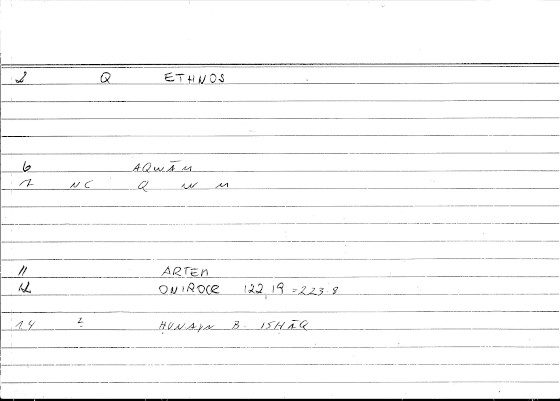 2 Q ETHNOS
6 AQWĀM
7 NC Q W M
11 ARTEM
12 ONIROCR 122,19 = 223.8
14 2 ḤUNAYN B ISḤĀQ